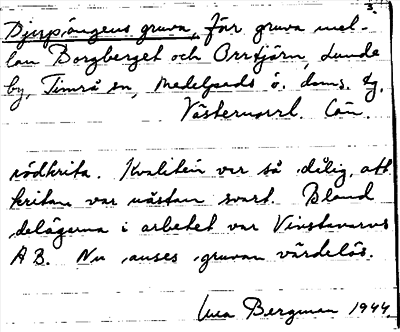 3.
Djupängens gruva, för gruva mel-
lan Borgberget och Orrtjärn, Lunde
by, Timrå sn, Medelpads ö. doms. tg,
Västernorrl. län.
rödkrita. Kvalitén var så dålig, att
kritan var nästan svart. Bland
delägarna i arbetet var Vinstavarvs
A B. Nu anses gruvan värdelös.
Bergman 1944.